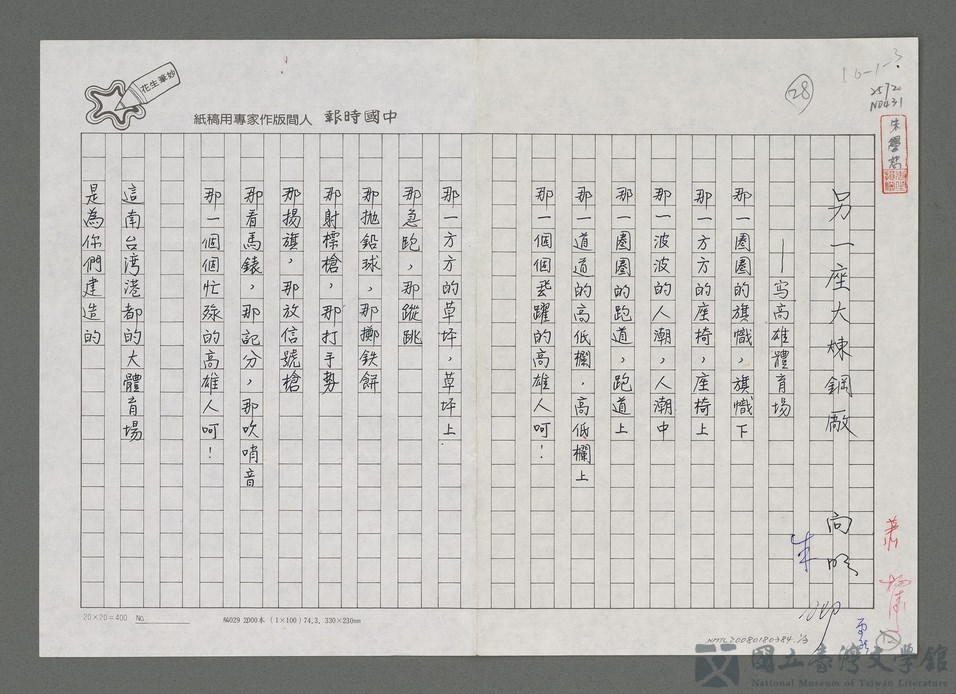 另一座大煉鋼廠
向明
——写高雄體育場
那一圈圈的旗幟，旗幟下
那一方方的座椅，座椅上
那一波波的人潮，人潮中
那一圈圈的跑道，跑道上
那一道道的高低欄，高低欄上
那一個個飛躍的高雄人呵！
那一方方的草坪，草坪上
那急跑，那蹤跳
那拋鉛球，那擲鉄餅
那射標槍，那打手势
那揚旗，那放信號槍
那看馬錶，那記分，那吹哨音
那一個個忙碌的高雄人呵！
這南台湾港都的大體育場
是為你們建造的
妙筆生花
中國時報 人間版作家專用稿紙
28
10-1-3
25/20
NO431
20×20=400 No.
編029 2000本 (1×100) 74.3. 330×230mm
NMTL20080180384.13
12
國立臺灣文學館
National Museum of Taiwan Literature